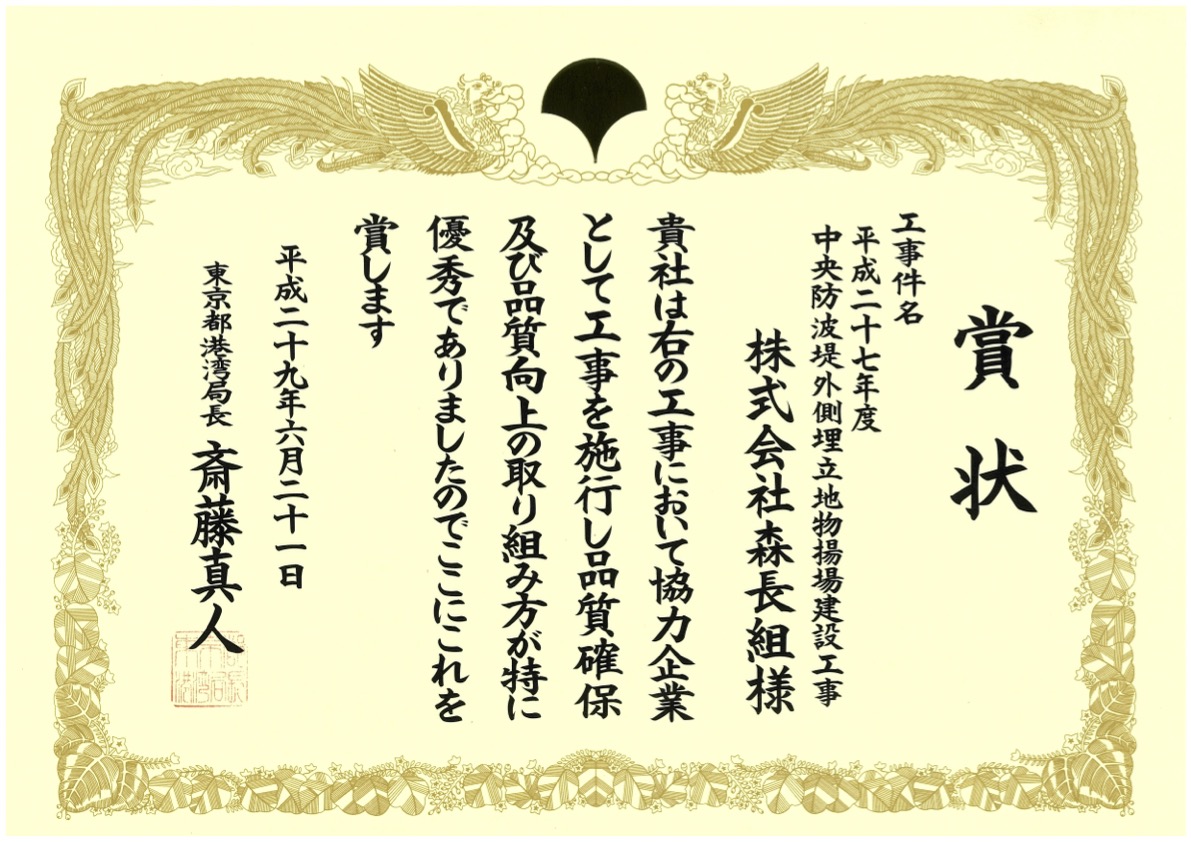 賞状
工事件名
平成二十七年度
中央防波堤外側埋立地物揚場建設工事
株式会社森長組様
貴社は右の工事において協力企業
として工事を施行し品質確保
及び品質向上の取り組み方が特に
優秀でありましたのでここにこれを
賞します
平成二十九年六月二十一日
東京都港湾局長 斎藤真人